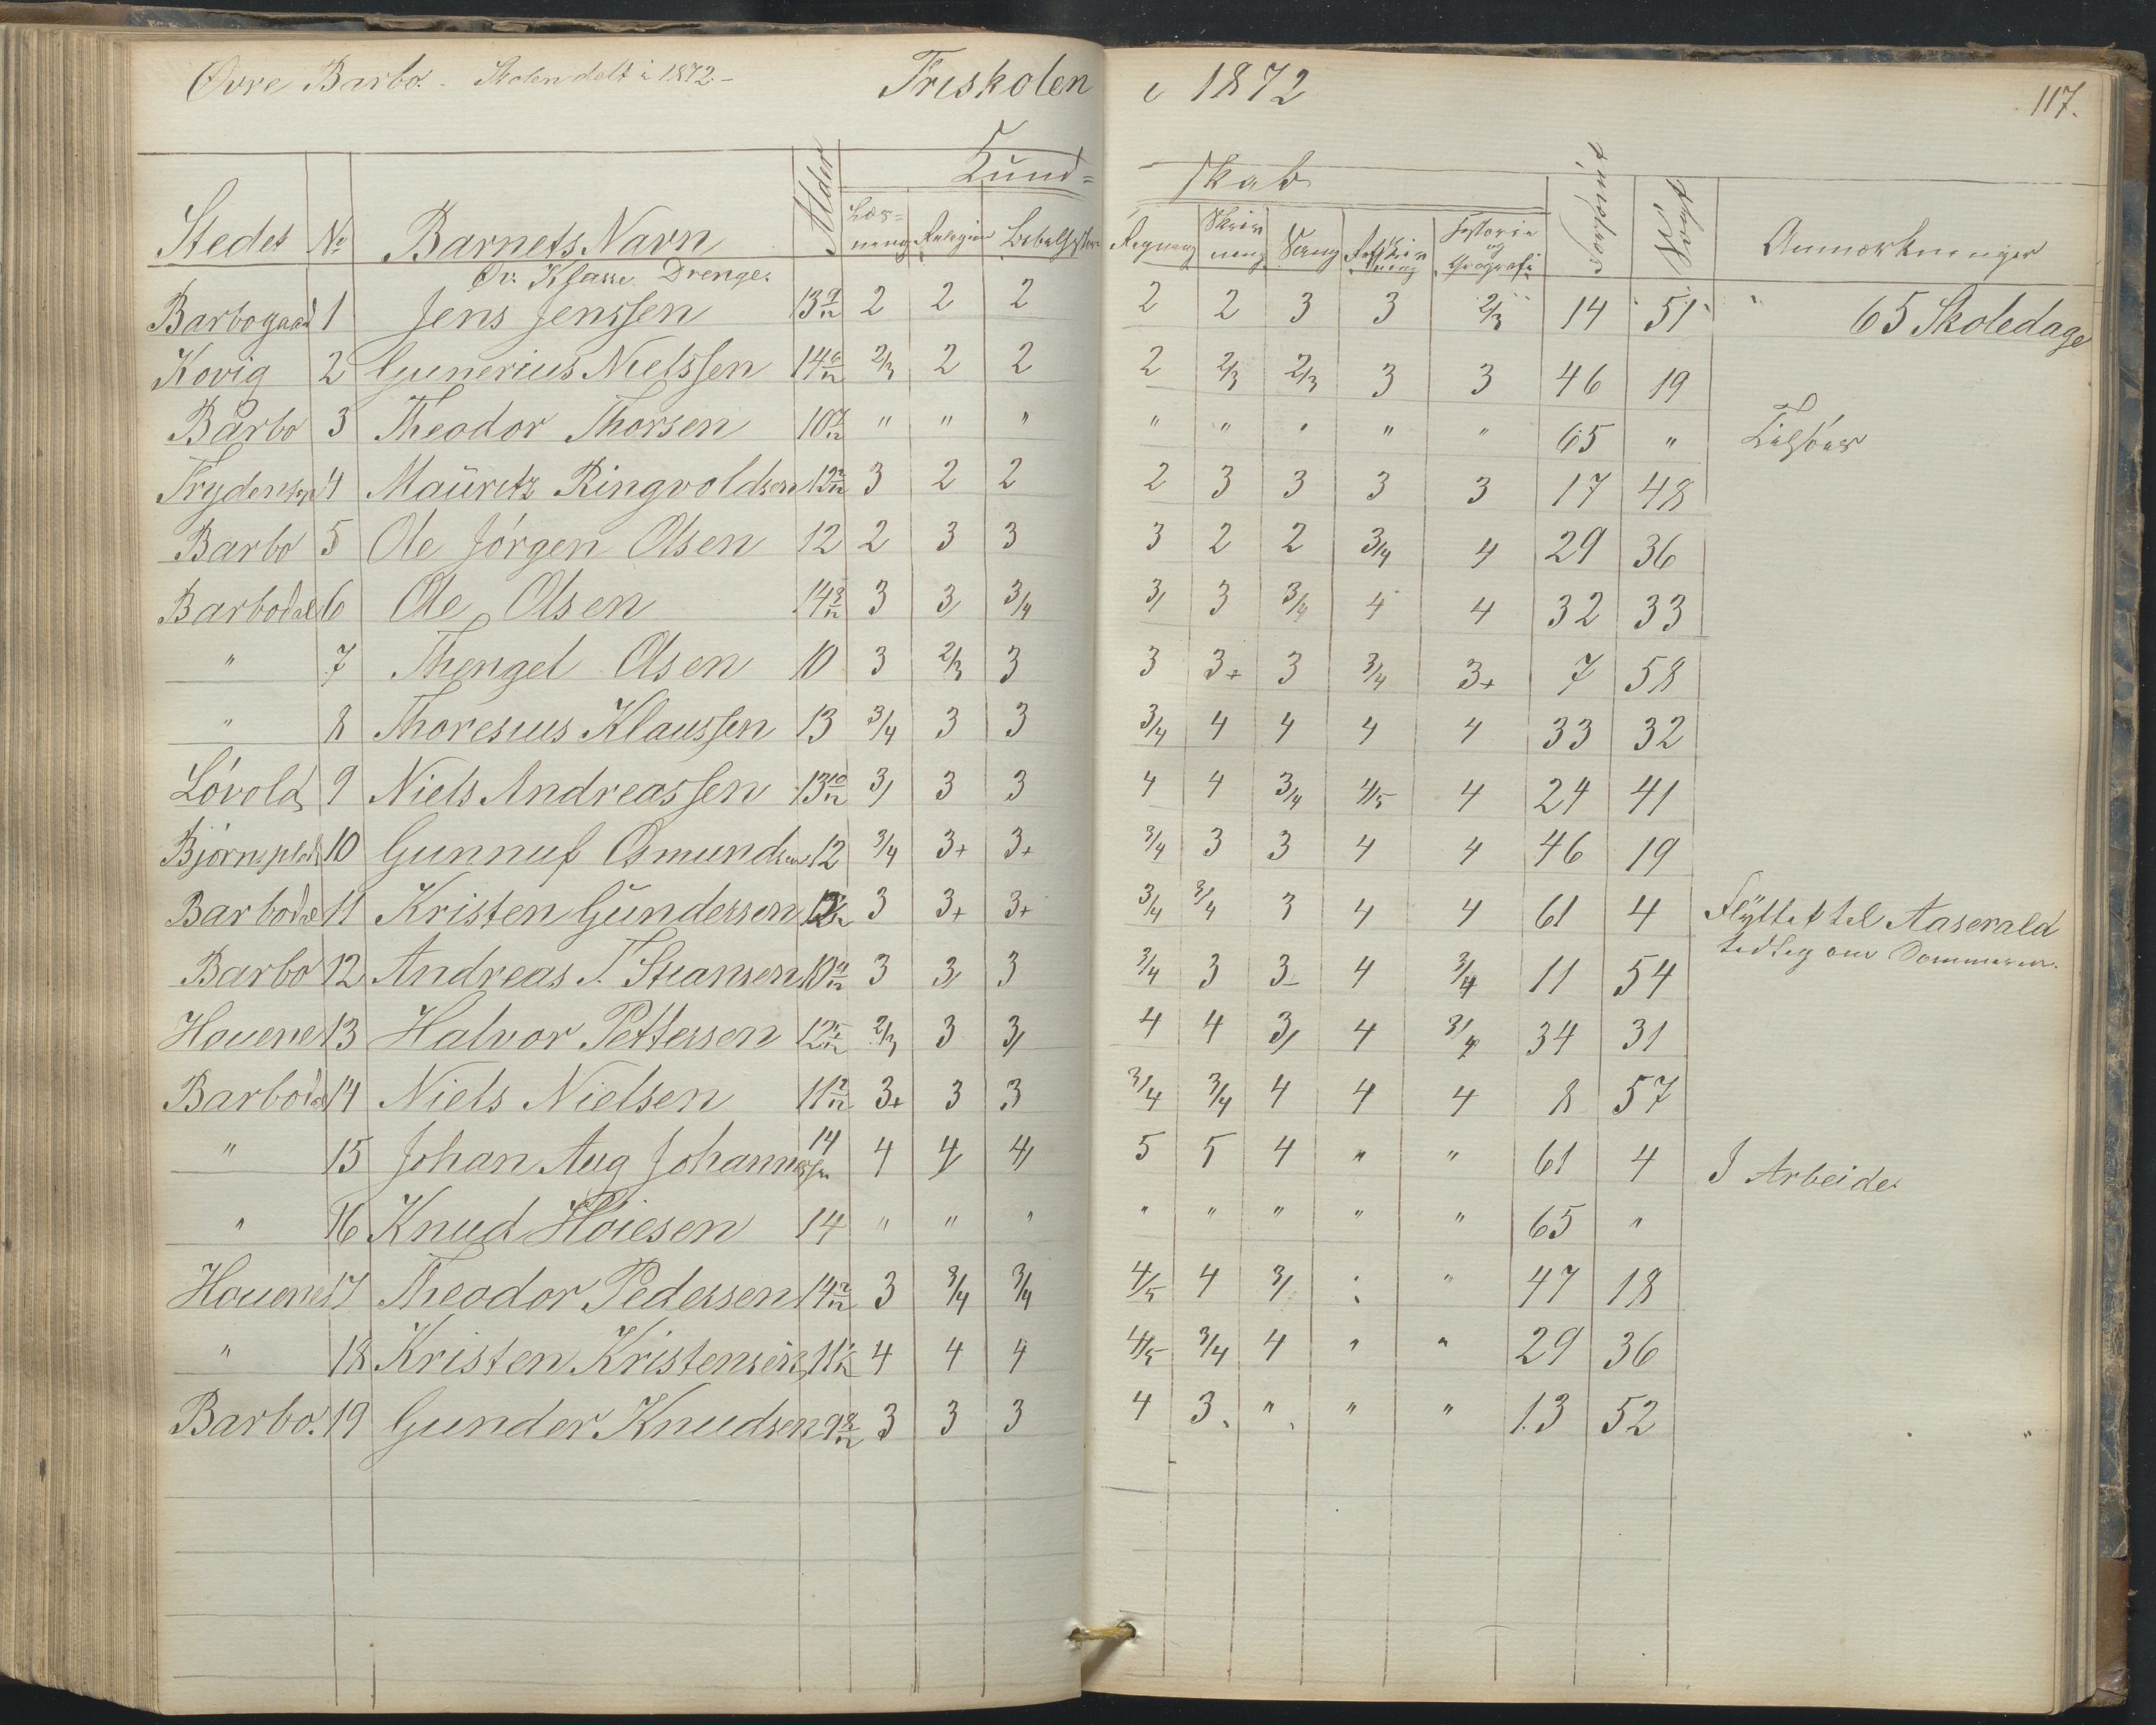 Øvre Barbo. Skolen delt i 1872.– Friskolen i 1872 117.
Kund= skab
Stedet No Barnets Navn Alder Læs= ning Religion Bibelhistorie Regning Skriv ning Sang Retskriv ning Historie og Geografi Forsømt Søgt Anmærkninger
Øv. Klasse Drenge.
Barbogaard 1 Jens Jenssen 13 9/12 2 2 2 2 2 3 3 2/3 14 51 65 Skoledage
Kovig 2 Gunerius Nielssen 14 6/12 2/3 2 2 2 2/3 2/3 3 3 46 19
Barbo 3 Theodor Thorsen 10 7/12 " " " " " " " " 65 " Tilsöes
4 Mauritz Ringvoldsen 12 2/12 3 2 2 2 3 3 3 3 17 48
Barbo 5 Ole Jörgen Olsen 12 2 3 3 3 2 2 3/4 4 29 36
Barbodal 6 Ole Olsen 14 3/12 3 3 3/4 3/ 3 3/4 4 4 32 33
" 7 Thengel Olsen 10 3 2/3 3 3 3+ 3 3/4 3+ 7 58
" 8 Thoresius Klaussen 13 3/4 3 3 3/4 4 4 4 4 33 32
Lövold 9 Niels Andreassen 13 10/12 3/ 3 3 4 4 3/4 4/5 4 24 41
Björnsplads 10 Gunnuf Osmundsen 12 3/4 3+ 3+ 3/4 3 3 4 4 46 19
Barbodal 11 Kristen Gundersen 3 3+ 3+ 3/4 3/4 3 4 4 61 4 Flyttet til Aaserald
tidlig om Sommeren.
Barbo 12 Andreas T. 10 9/12 3 3/ 3 3/4 3 3– 4 3/4 11 54
Houene 13 Halvor Pettersen 12 5/12 2/3 3 3/ 4 4 3/ 4 3/4 34 31
Barbodal 14 Niels Nielsen 11 2/12 3+ 3 3 3/4 3/4 4 4 4 8 57
" 15 Johan Aug Johannessen 14 4 4/ 4/ 5 5 4 " " 61 4 I Arbeide.
" 16 Knud Höiesen 14 " " " " " " " " 65 "
Houene 17 Theodor Pedersen 14 2/12 3 3/4 3/4 4/5 4 3/ : " 47 18
" 18 Kristen Kristensen 11 4 4 4 4/5 3/4 4 " " 29 36
Barbo. 19 Gunder Knudsen 9 8/12 3 3 3 4 3 " " " 13 52